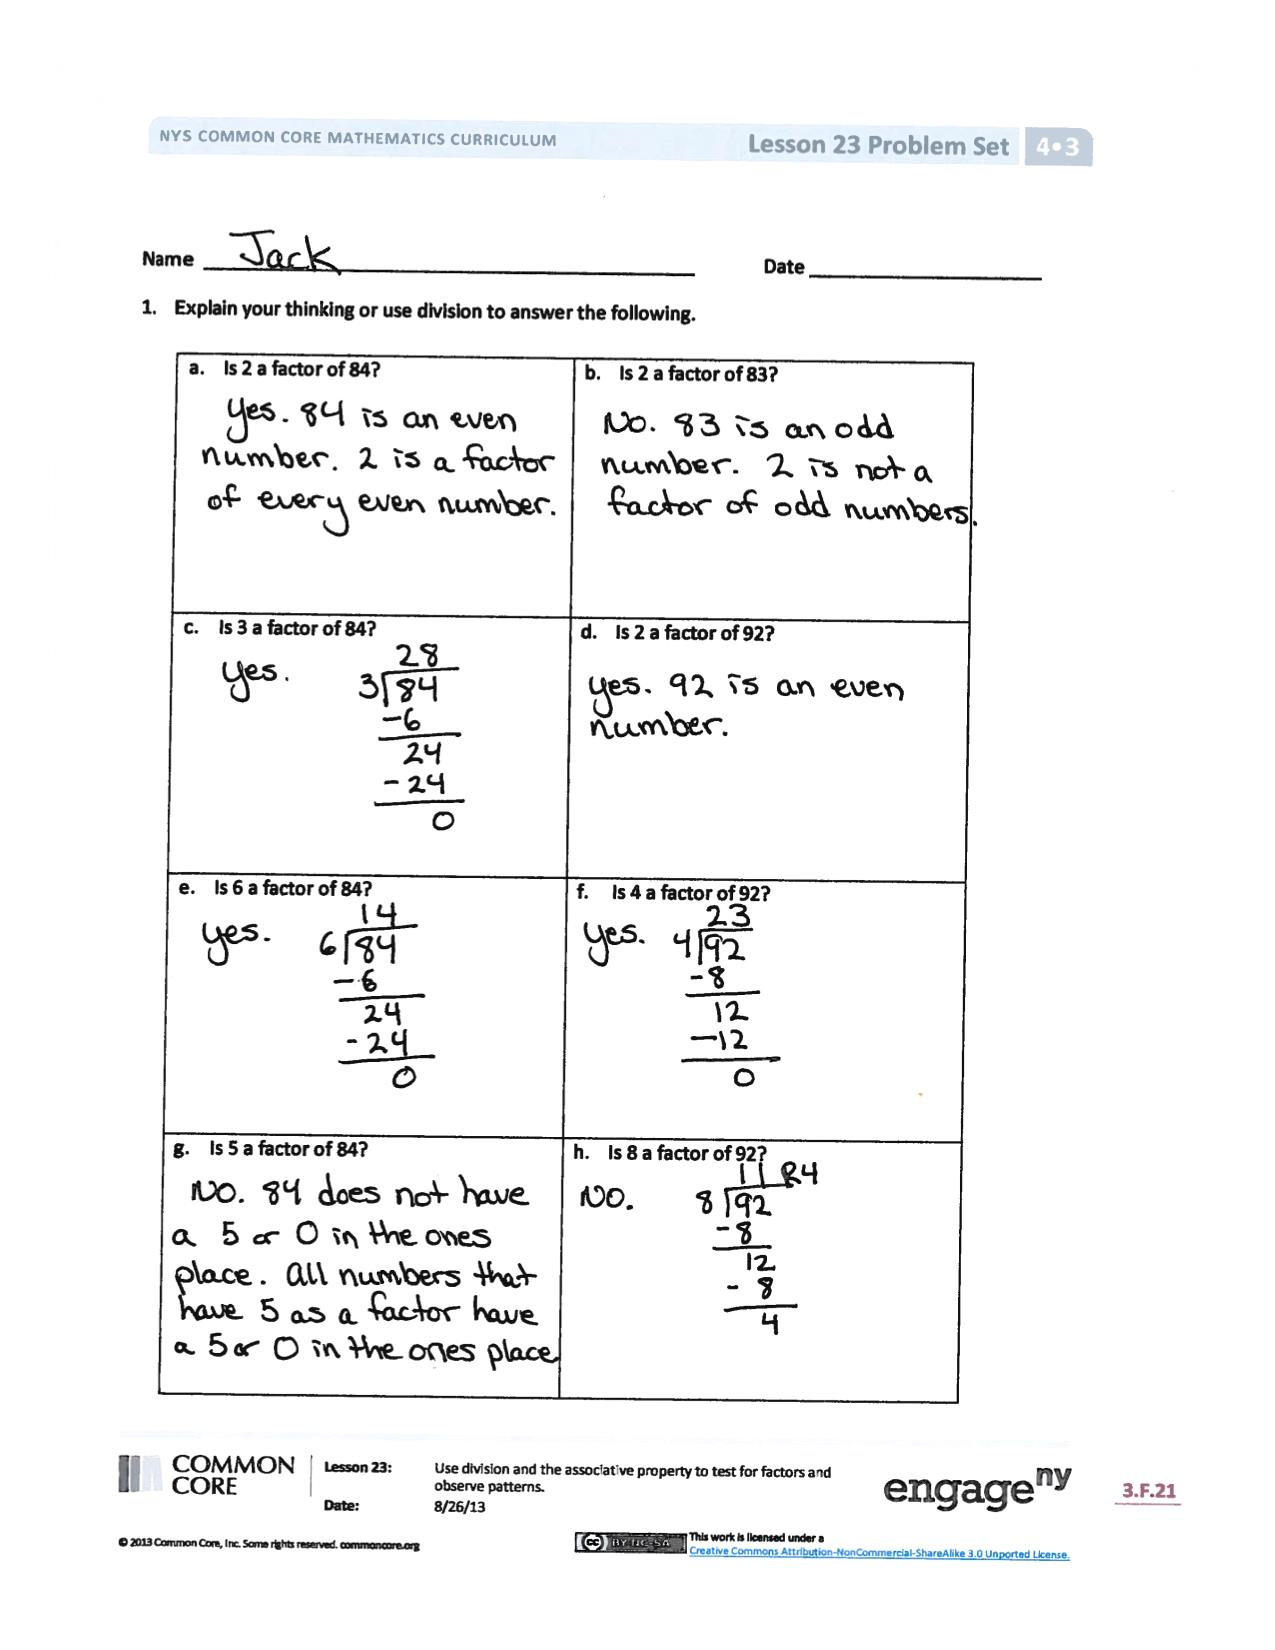 NYS COMMON CORE MATHEMATICS CURRICULUM
Lesson 23 Problem Set 4•3
Name Jack
Date
1. Explain your thinking or use division to answer the following.
a. Is 2 a factor of 84?
yes. 84 is an even
number. 2 is a factor
of every even number.
b. Is 2 a factor of 83?
No. 83 is an odd
number. 2 is not a
factor of odd numbers.
c. Is 3 a factor of 84?
yes.
28
3 84
-6
24
-24
0
d. Is 2 a factor of 92?
yes. 92 is an even
number.
e. Is 6 a factor of 84?
yes.
14
6 84
-6
24
-24
0
f. Is 4 a factor of 92?
yes.
23
4 92
-8
12
-12
0
g. Is 5 a factor of 84?
No. 84 does not have
a 5 or 0 in the ones
place. all numbers that
have 5 as a factor have
a 5 or 0 in the ones place
h. Is 8 a factor of 92?
NO.
11 R4
8 92
-8
12
- 8
4
COMMON
CORE
Lesson 23: Use division and the associative property to test for factors and
observe patterns.
Date: 8/26/13
engageny
3.F.21
© 2013 Common Core, Inc. Some rights reserved. commoncore.org
cc BY-NC-SA
This work is licensed under a
Creative Commons Attribution-NonCommercial-ShareAlike 3.0 Unported License.